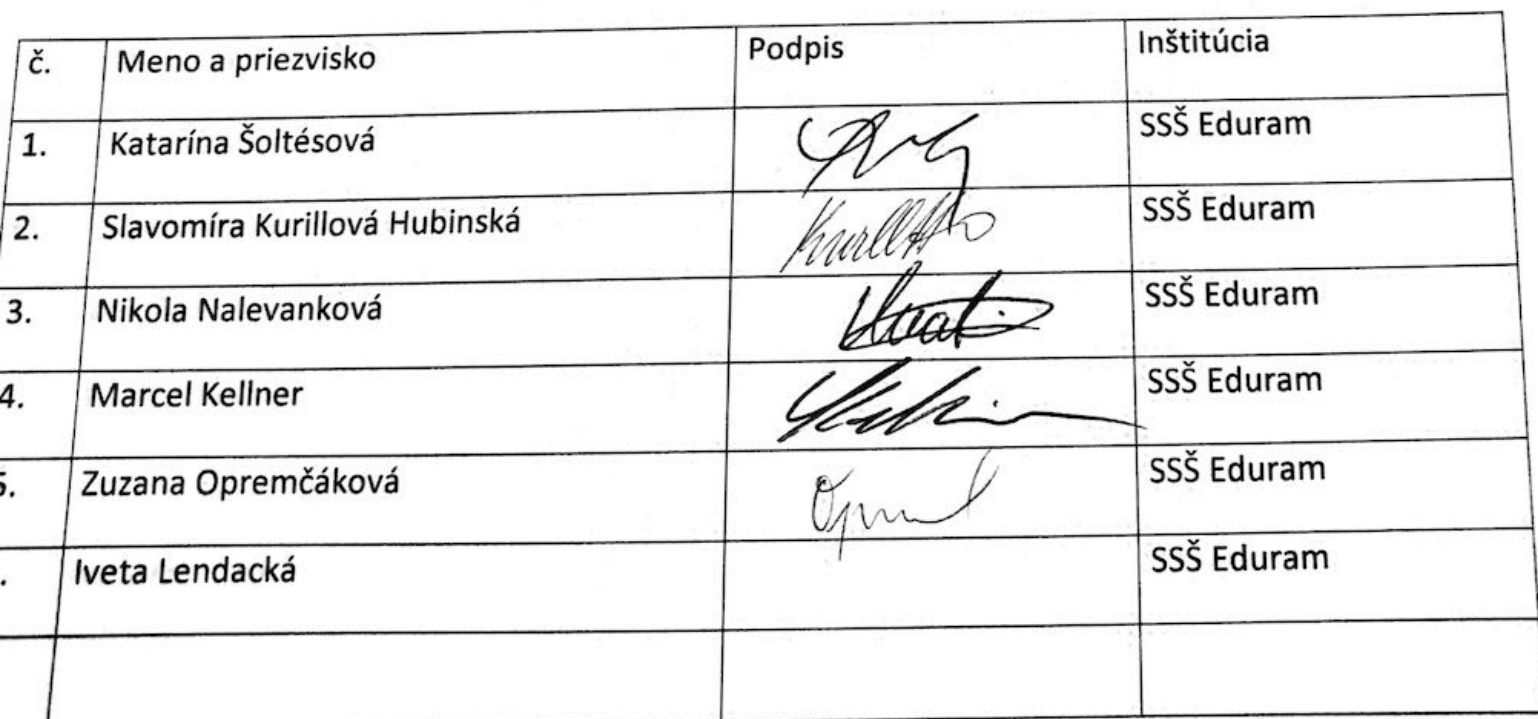 č. Meno a priezvisko Podpis Inštitúcia
1. Katarína Šoltésová SSŠ Eduram
2. Slavomíra Kurillová Hubinská SSŠ Eduram
3. Nikola Nalevanková SSŠ Eduram
4. Marcel Kellner SSŠ Eduram
5. Zuzana Opremčáková SSŠ Eduram
. Iveta Lendacká SSŠ Eduram